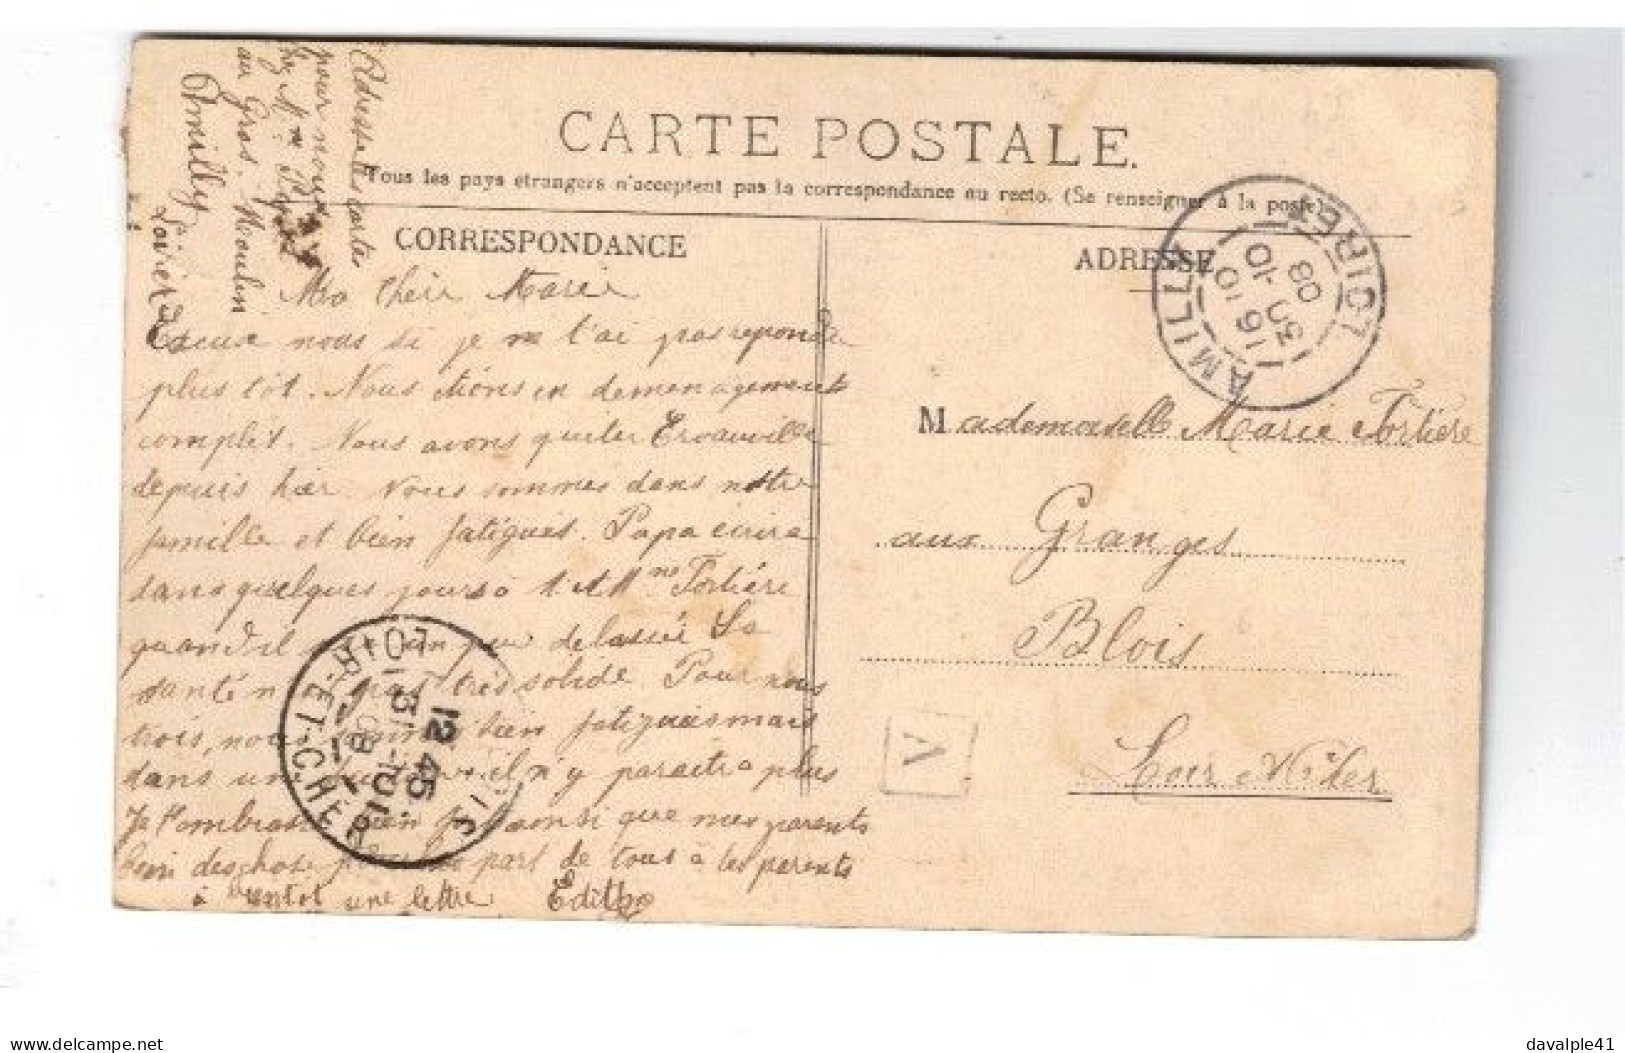 Adresse tes cartes
pour nous
chez Mme
au Gros-Moulin
Amilly
Loiret
CARTE POSTALE.
Tous les pays étrangers n'acceptent pas la correspondance au recto. (Se renseigner à la poste)
CORRESPONDANCE
Ma chère Marie
Excuse nous si je ne t'ai pas repondu
plus tôt. Nous étions en demenagement
complet. Nous avons quiter
depuis hier. Nous sommes dans notre
famille et bien fatigués. Papa écrira
dans quelques jours à M et Mme Fortière
quand il un peu delassé Sa
santé n' pas très solide. Pour nous
trois, nous sommes bien fatigués mais
dans un il n'y paraitra plus
Je t'embrasse bien ainsi que mes parents
bien des choses de la part de tous à tes parents
à bientot une lettre Edith
ADRESSE
Mademoiselle Marie Fortière
aux Granges
Blois
Loir et Cher
AMILLY LOIRET
16 10
30 -10
08
BLOIS LOIR-ET-CHER
12 45
31 -10
08
V
davalple41